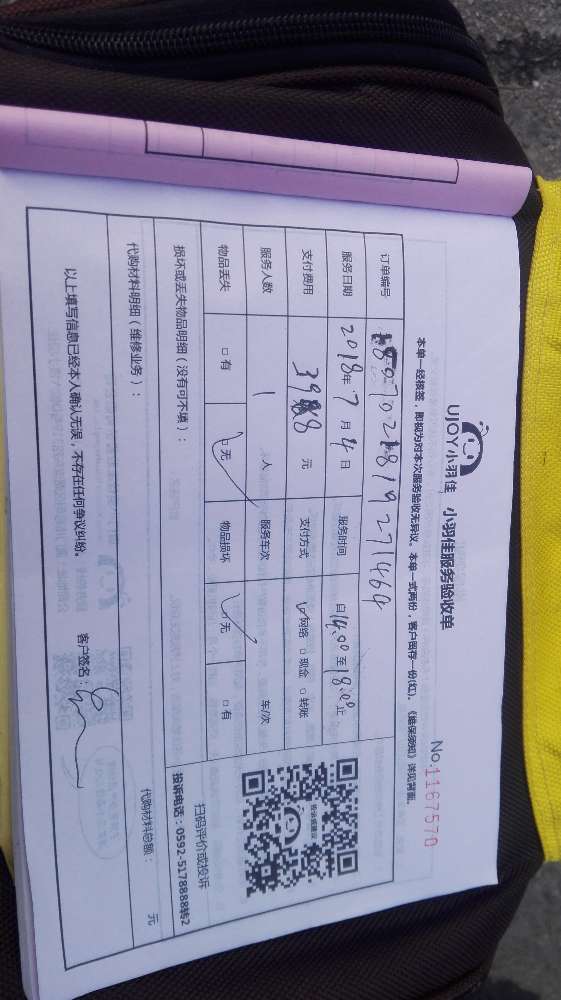 UJOY小羽佳 小羽佳服务验收单
No.1167570
本单一经核签，即视为对本次服务验收无异议。本单一式两份，客户留存一份(红)。《维保须知》详见背面。
订单编号
服务日期 2018年7月4日 服务时间 自14:00至18:00止
支付费用 元 支付方式 网络 □现金 □转账
服务人数 1 人 服务车次 车/次
物品丢失 □有 □无 物品损坏 □无 □有
损坏或丢失物品明细（没有可不填）：
代购材料明细（维修业务）：
代购材料总额： 元
投诉或建议
扫码评价或投诉
投诉电话：0592-5178888转2
以上填写信息已经本人确认无误，不存在任何争议纠纷。
客户签名：